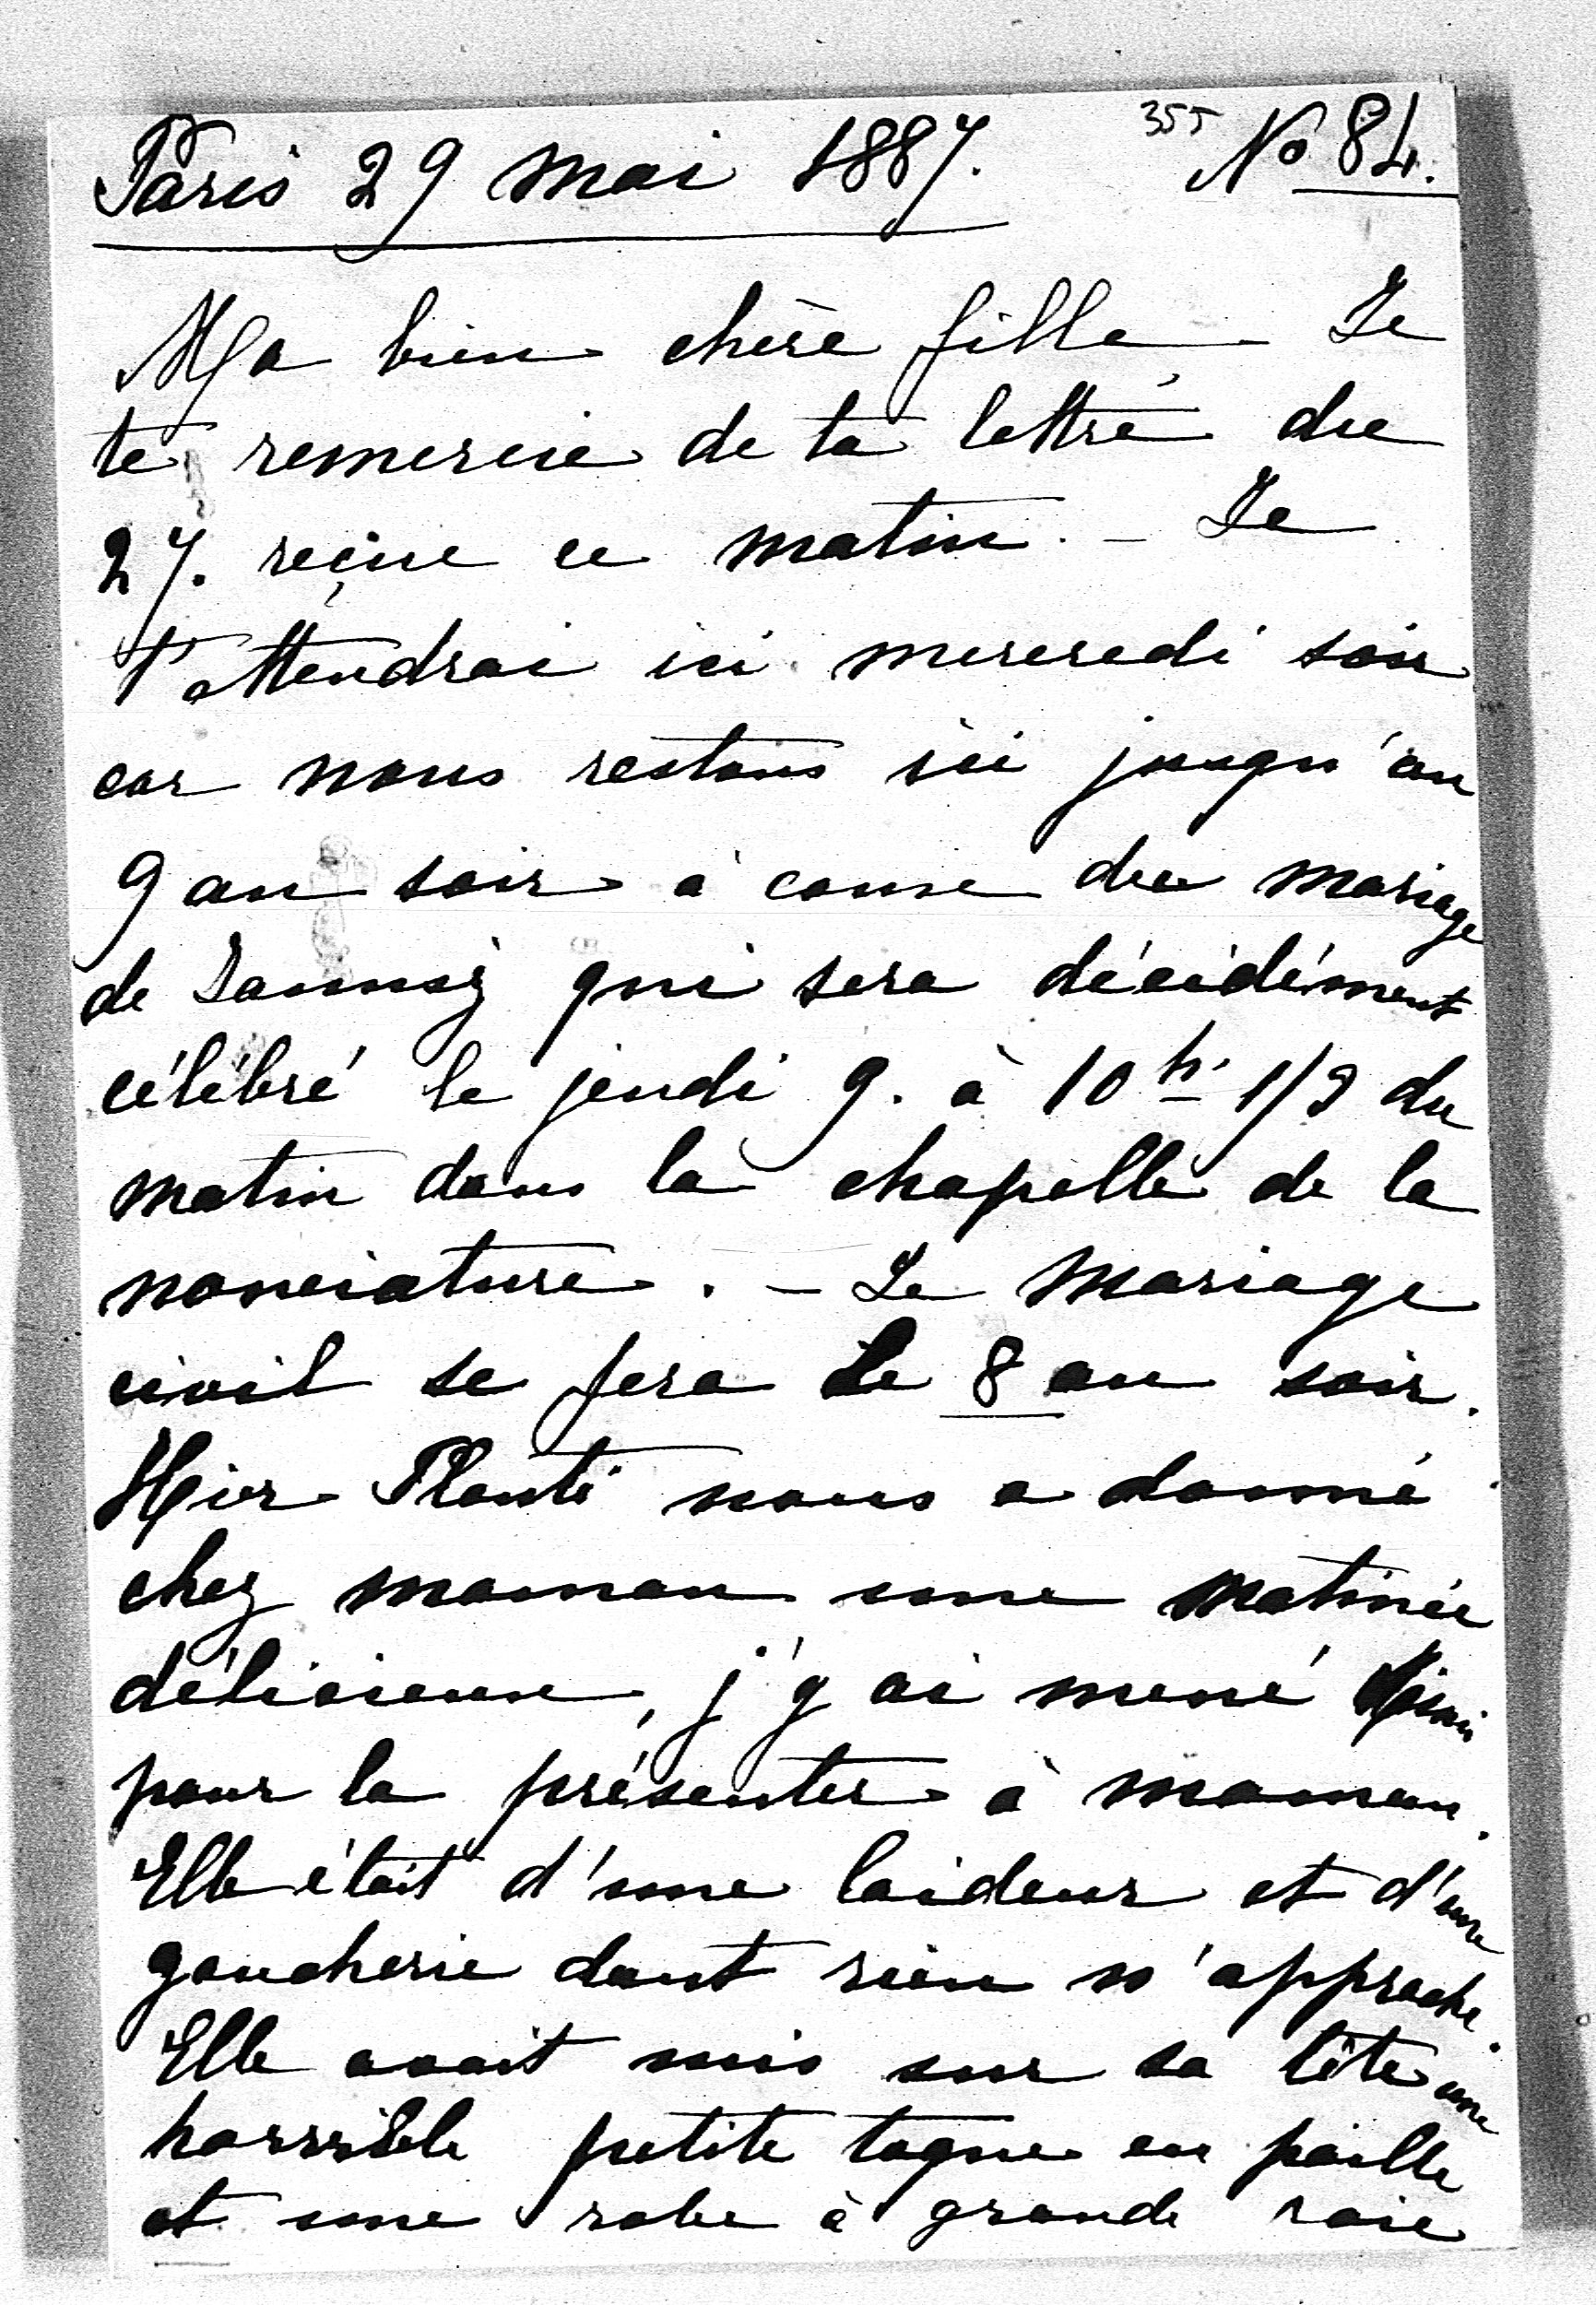 Paris 29 mai 1887. 355 No 84.
Ma bien chère fille - Je
te remercie de ta lettre du
27. reçue ce matin. - Je
t'attendrai ici mercredi soir
car nous restons ici jusqu'au
9 au soir à cause du mariage
de qui sera décidément
célébré le jeudi 9. à 10 h. 1/2 du
matin dans la chapelle de la
nonciature. - Le mariage
civil se fera le 8 au soir.
Hier Planté nous a donné
chez maman une matinée
délicieuse, j'y ai mené
pour la présenter à maman.
Elle était d'une laideur et d'une
gaucherie dont rien n'approche.
Elle avait mis sur sa tête une
horrible petite toque en paille
et une robe à grande raie